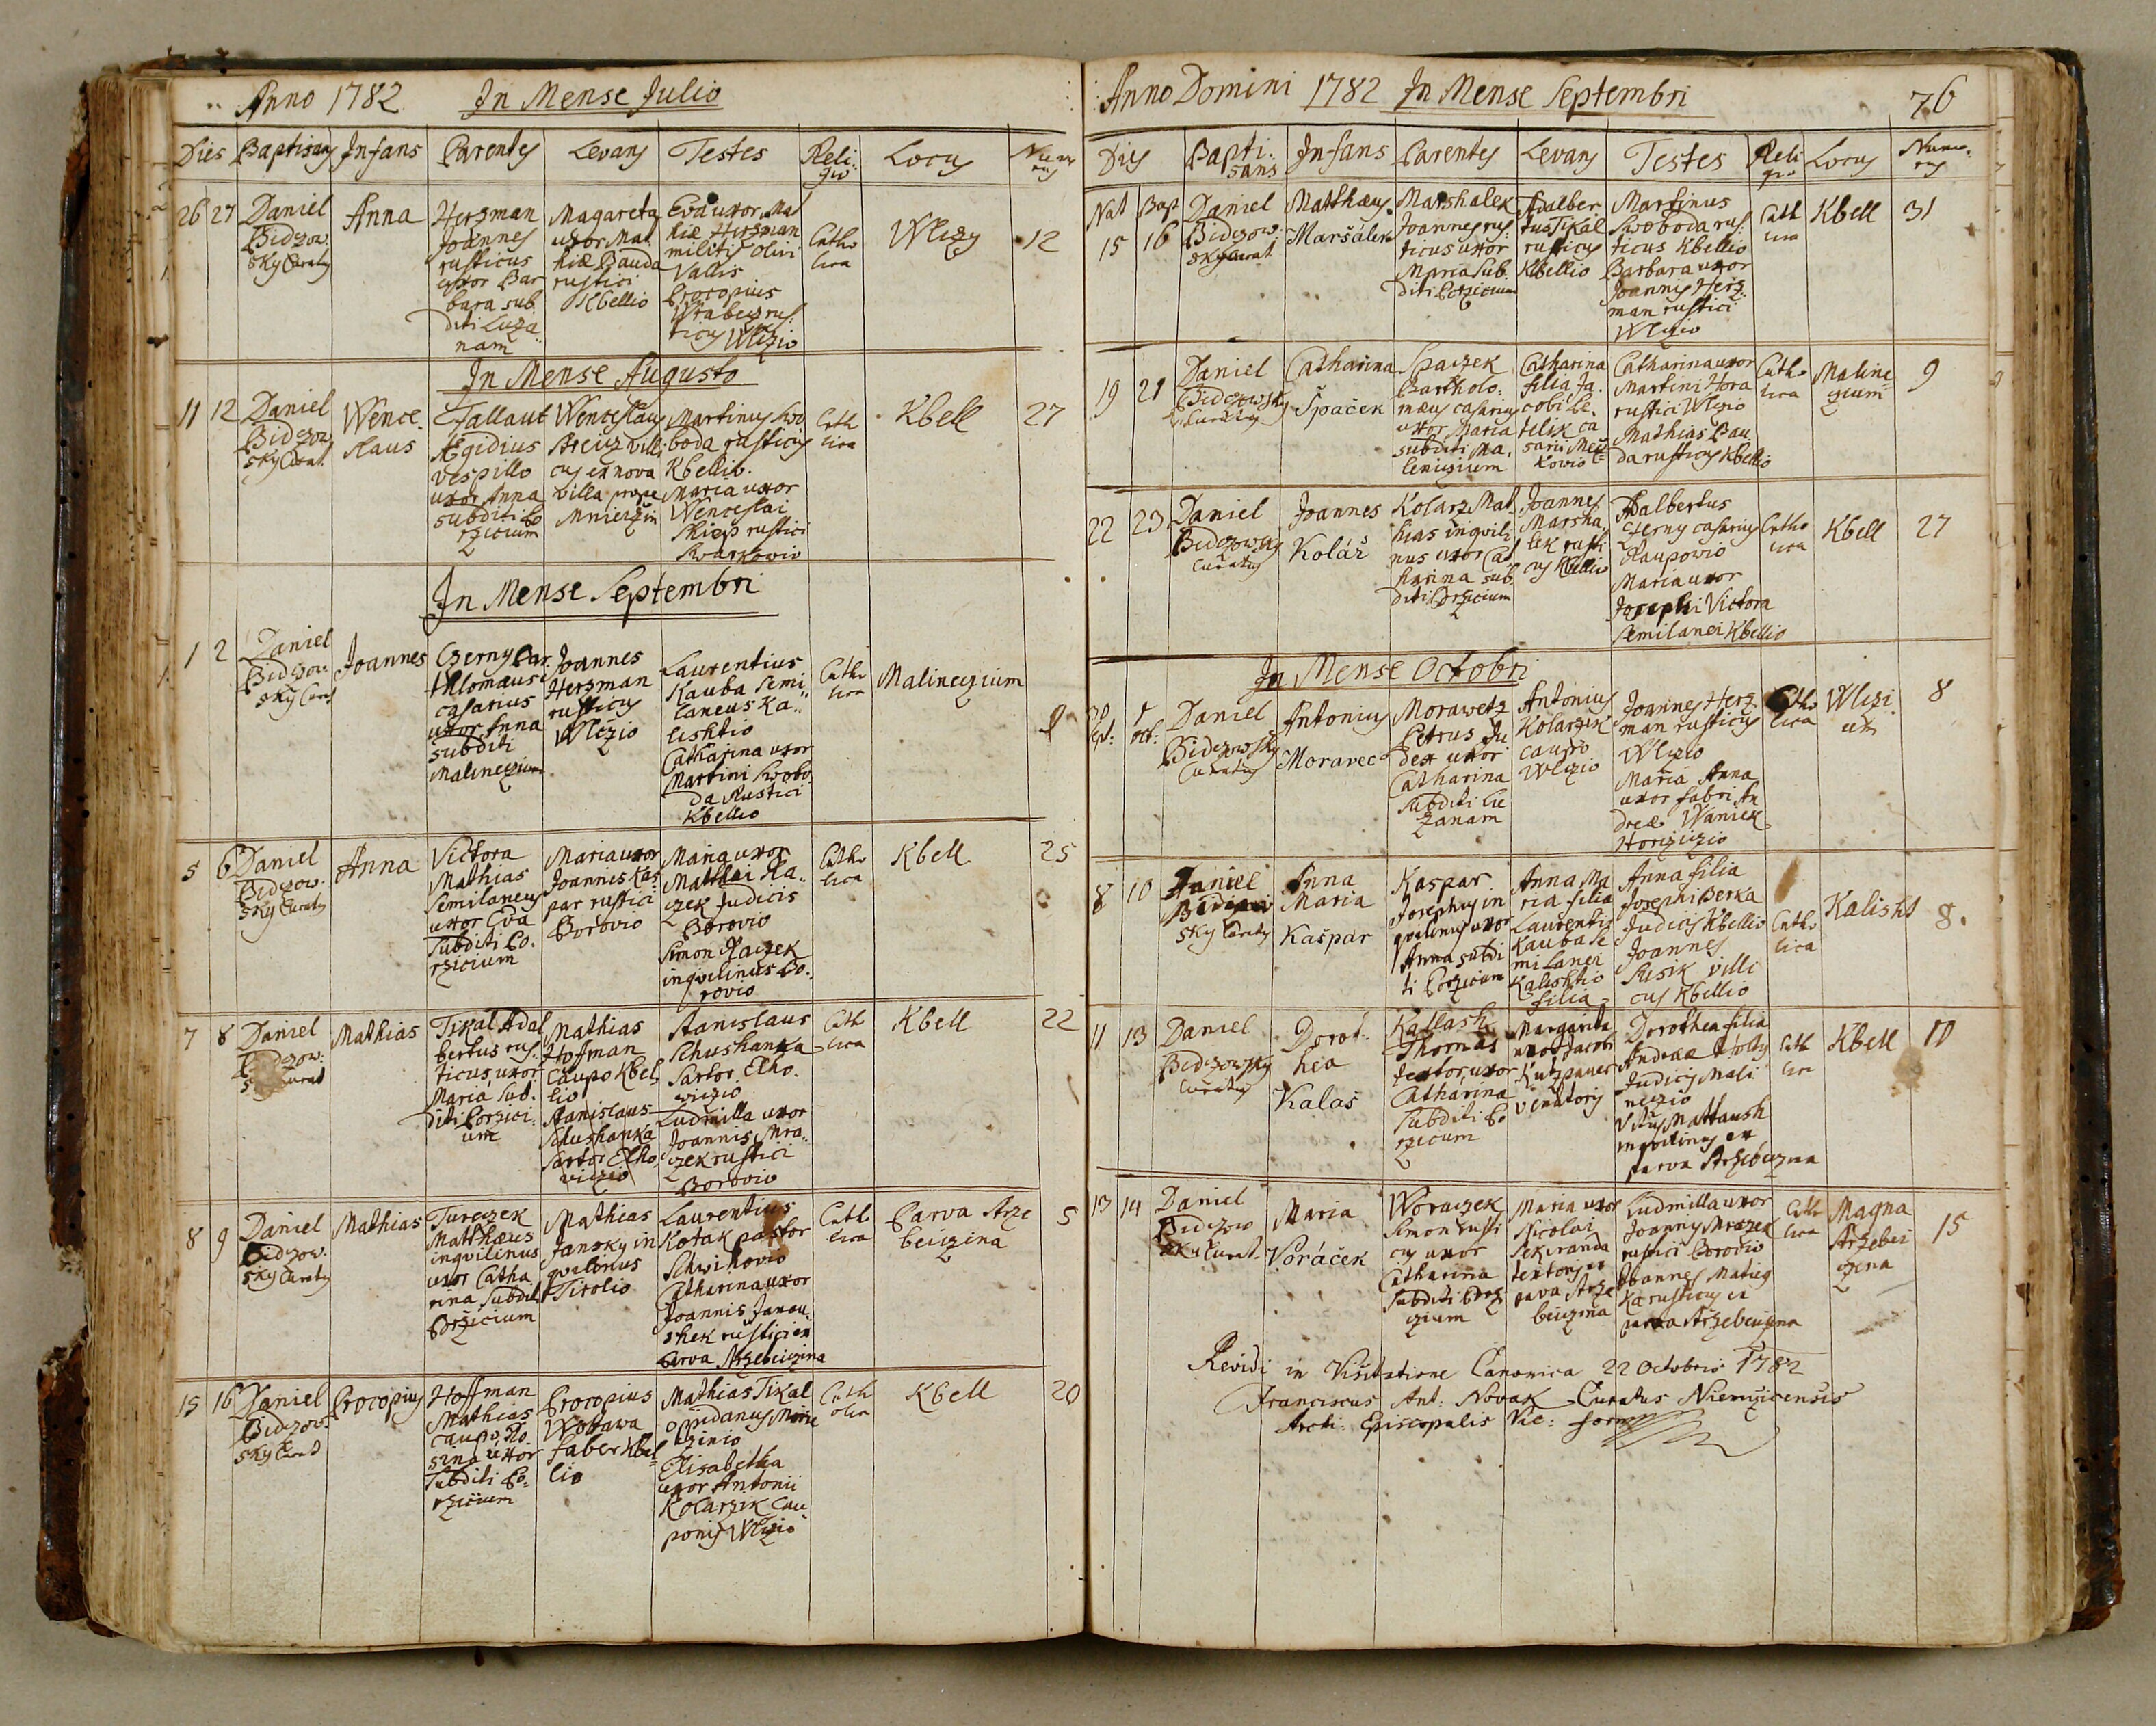 Anno 1782 In Mense Julio
Dies Baptisans Infans Parentes Levans Testes Religio Locus Numerus
26 27
Daniel
Bidczow.
sky Curatus
Anna
Herzman
Joannes
rusticus
uxor Bar
bara sub
diti Luza
nam
Magareta
uxor Mat
hiæ Bauda
rustici
Kbellio
Eva uxor Mat
hiæ Herzman
militis Olivi
Vallis
Procopius
Wrabecz rus
ticus Wlczio
Catho
lica
Wlczy
12
In Mense Augusto
11 12
Daniel
Bidczow
sky Curat.
Wence
slaus
Tallaut
Ægidius
vespillo
uxor Anna
subditi Po
rzicium
Wenceslaus
Streicz villi
cus ex nova
villa prope
Martinus Swo
boda rusticus
Kbellio.
Maria uxor
Wenceslai
rustici
Cath
lica
Kbell
27
In Mense Septembri
1 2
Daniel
Bidczow
sky Curat
Joannes
Czerny Bar
tholomæus
casarius
uxor Anna
subditi
Malineczium
Joannes
Herzman
rusticus
Wlczio
Laurentius
Kauba Semi
laneus Ka
lishtio
Catharina uxor
Martini Swobo
da Rustici
Kbellio
Catho
lica
Malineczium
5 6
Daniel
Bidczow.
sky Curatus
Anna
Victora
Mathias
Semilaneus
uxor Eva
Subditi Po.
rzicium
Maria uxor
Joannis Kas
par rustici
Borovio
Maria uxor
Mathæi Ka
czek Judicis
Borovio
Simon
inqvilinus Bo.
rovio
Catho
lica
Kbell
25
7 8
Daniel
Bidczow.
sky Curat
Mathias
Tikal Adal
bertus rus
ticus, uxor
Maria Sub.
diti Porzici
um
Mathias
Hofman
Caupo Kbel
lio
Stanislaus
Schushanka
Sartor Elho
viczio
Stanislaus
Schushanka
Sartor Elho.
wiczio
Ludmilla uxor
Joannis Mra
czek rustici
Borovio
Cath
lica
Kbell
22
8 9
Daniel
Bidczow.
sky Curatus
Mathias
Tureczek
Matthæus
inqvilinus
uxor Catha
rina Subdit
Porzicium
Mathias
Jansky in
qvilinus
Tirolio
Laurentius
Kotak pastor
Schwihovio
Catharina uxor
Joannis Janou
shek rustici ex
Parva Strzebiczina
Catho
lica
Parva Strze
beiczina
5
15 16
Daniel
Bidczow.
sky Curat
Procopius
Hoffman
Mathias
caupo, Ro
sina uxor
Subditi Po
rzicium
Procopius
Wottawa
faber Kbel
lio
Mathias Tikal
oppidanus Merk
linio
Elisabetha
uxor Antonii
Kolarzik Cau
ponis Wlczio
Cath
olica
Kbell
20
Anno Domini 1782 In Mense Septembri 76
Dies Bapti:sans Infans Parentes Levans Testes Religio Locus Numerus
Nat Bap
15 16
Daniel
Bidczow.
sky Curat
Matthæus.
Maršálek
Marshalek
Joannes rus
ticus uxor
Maria Sub.
diti Porzicium
Adalber
tus Tikal
rusticus
Kbellio
Martinus
Swoboda rus
ticus Kbellio
Barbara uxor
Joannis Herz
man rustici
Wlczio
Catho
lica
Kbell
31
19 21
Daniel
Bidczowsky
Curatus
Catharina
Špaček
Spaczek
Bartholo:
mæus casarius
uxor Maria
subditi Ma.
lenicium
Catharina
filia Ja.
cobi Pe.
telik ca
sarii
Catharina uxor
Martini Hora
rustici Wlczio
Mathias Bau
da rusticus Kbellio
Catho
lica
Maline
czium
9
22 23
Daniel
Bidczowsky
Curatus
Joannes
Kolář
Kolarz Mat
hias inqvili
nus uxor Cat
harina sub
diti Porzicium
Joannes
Marsha
lek rusti
cus Kbellio
Adalbertus
Czerny casarius
Raupowio
Maria uxor
Josephi Victora
Semilanei Kbellio
Catho
lica
Kbell
27
In Mense Octobri
30 Sept: 1 oct:
Daniel
Bidczowsky
Curatus
Antonius
Moravec
Morawetz
Petrus Ju
dex uxor
Catharina
Subditi Lu
zanam
Antonius
Kolarzik
caupo
Wlczio
Joannes Herz
man rusticus
Wlczio
Maria Anna
uxor fabri An
dreæ Waniek
Horcziczio
Catho
lica
Wlczi
um
8
8 10
Daniel
Bidczow
sky Curatus
Anna
Maria
Kašpar
Kaspar
Josephus in
qvilinus uxor
Anna subdi
ti Porzicium
Anna Ma
ria filia
Laurentii
Kauba Se
milanei
Kalishtio
filia
Anna filia
Josephi Berka
Judicis Kbellio
Joannes
Susik villi
cus Kbellio
Catho
lica
Kalisht
8.
11 13
Daniel
Bidczowsky
Curatus
Dorot.
hea
Kalaš
Kallash
Thomas
textor, uxor
Catharina
Subditi Po
rzicium
Margarita
uxor Jacobi
Kutzpauer
venatoris
Dorothea filia
Andreæ Holly
Judicis Mali
neczio
Vitus Mattaush
inqvilinus ex
parva Strzebeiczna
Cath
lica
Kbell
10
13 14
Daniel
Bidczow
sky Curat.
Maria
Voráček
Woraczek
Simon rusti
cus uxor
Catharina
Subditi Porz
izium
Maria uxor
Nicolai
Sekiranda
textoris ex
parva Strze
beiczina
Ludmilla uxor
Joannis Mraczek
rustici Borovio
Joannes Matieg
ka rusticus ex
parva Strzebeiczna
Catho
lica
Magna
Strzebei
czna
15
Revidi in Visitatione Canonica 22 Octobris 1782
Franciscus Ant: Novak Curatus Niemčicensis
Archi: Episcopalis Vic: foran